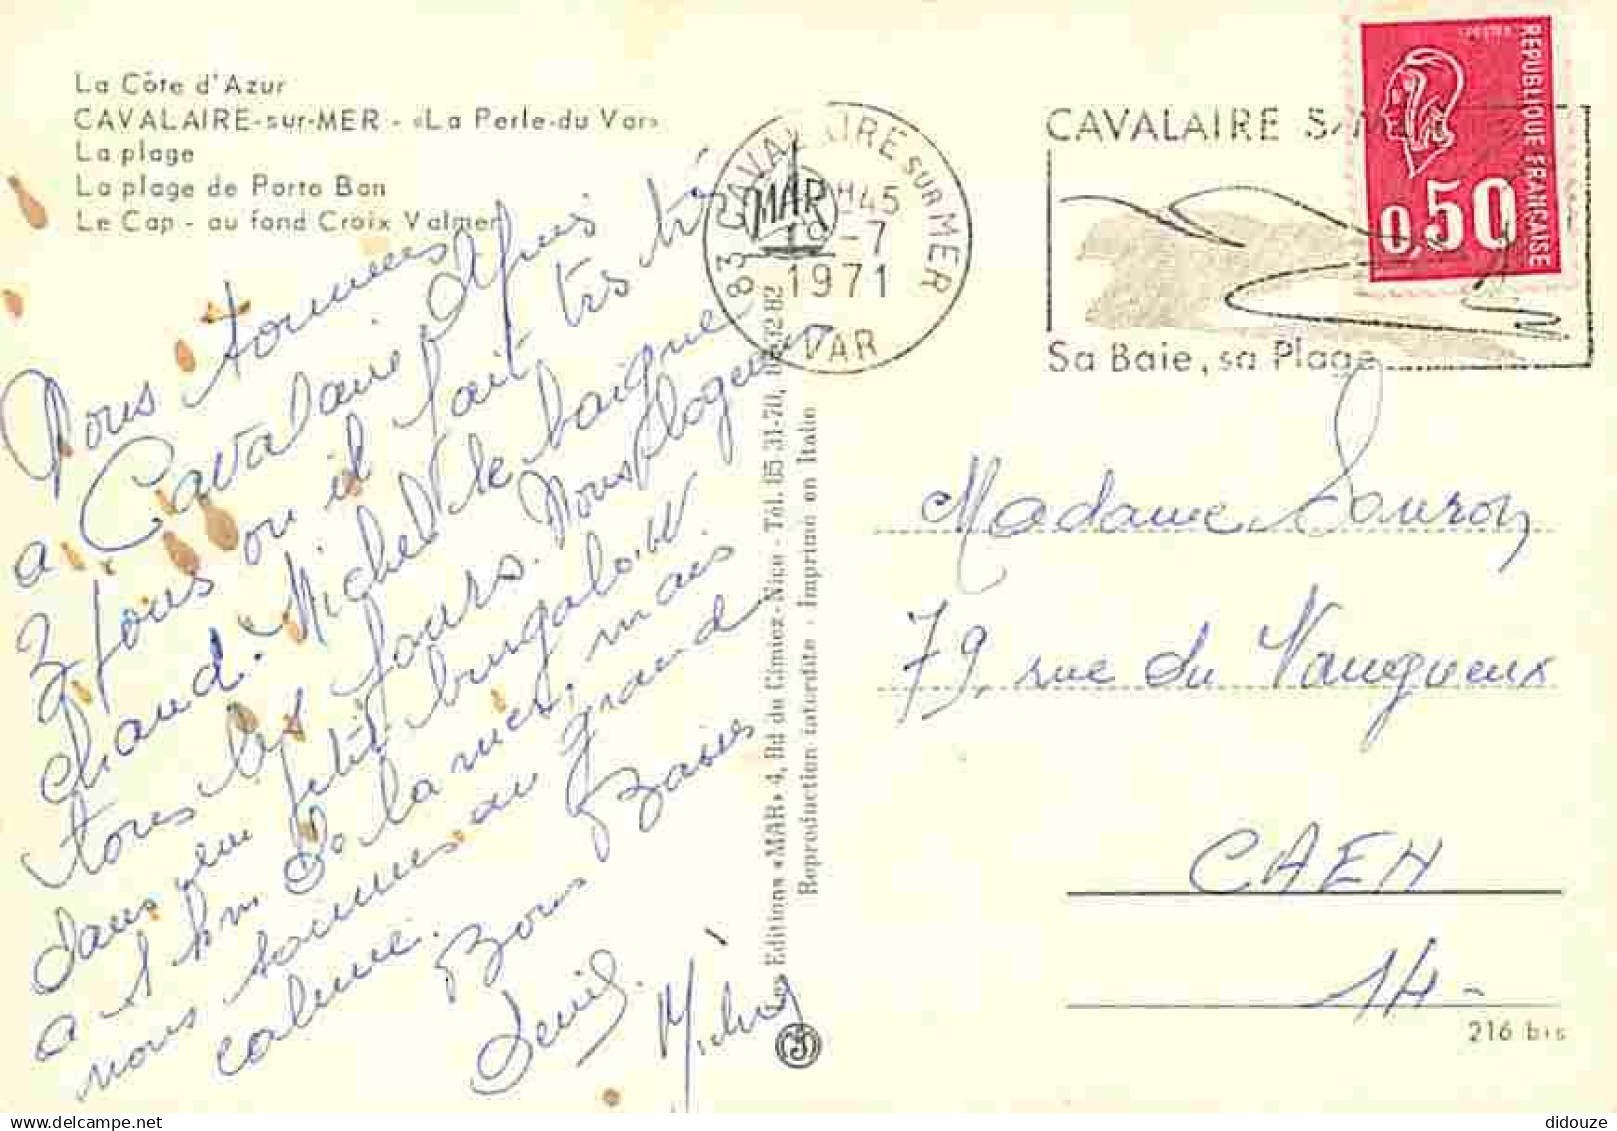 La Côte d'Azur
CAVALAIRE-sur-MER - «La Perle-du Var»
La plage
La plage de Porto Ban
Le Cap - au fond Croix Valmer
Nous sommes
a Cavalaire depuis
3 jours ou il fait très très
chaud. Michel se baigne
tous les jours. Nous logeons
dans un petit bungalow
a 1 km de la mer, mais
nous sommes au grand
calme.
Bons Baisers
Denis. Michel
Les Editions «MAR» 4, Bd du Cimiez-Nice - Tél. 85 31-70, 85 12 82
Reproduction interdite - Imprimé en Italie
MAR
83 CAVALAIRE SUR MER
H45
-7
1971
VAR
CAVALAIRE S/M
Sa Baie, sa Plage
POSTES
REPUBLIQUE FRANÇAISE
0,50
Madame Lauron
79, rue du Vaugueux
CAEN
14-
216 bis
didouze